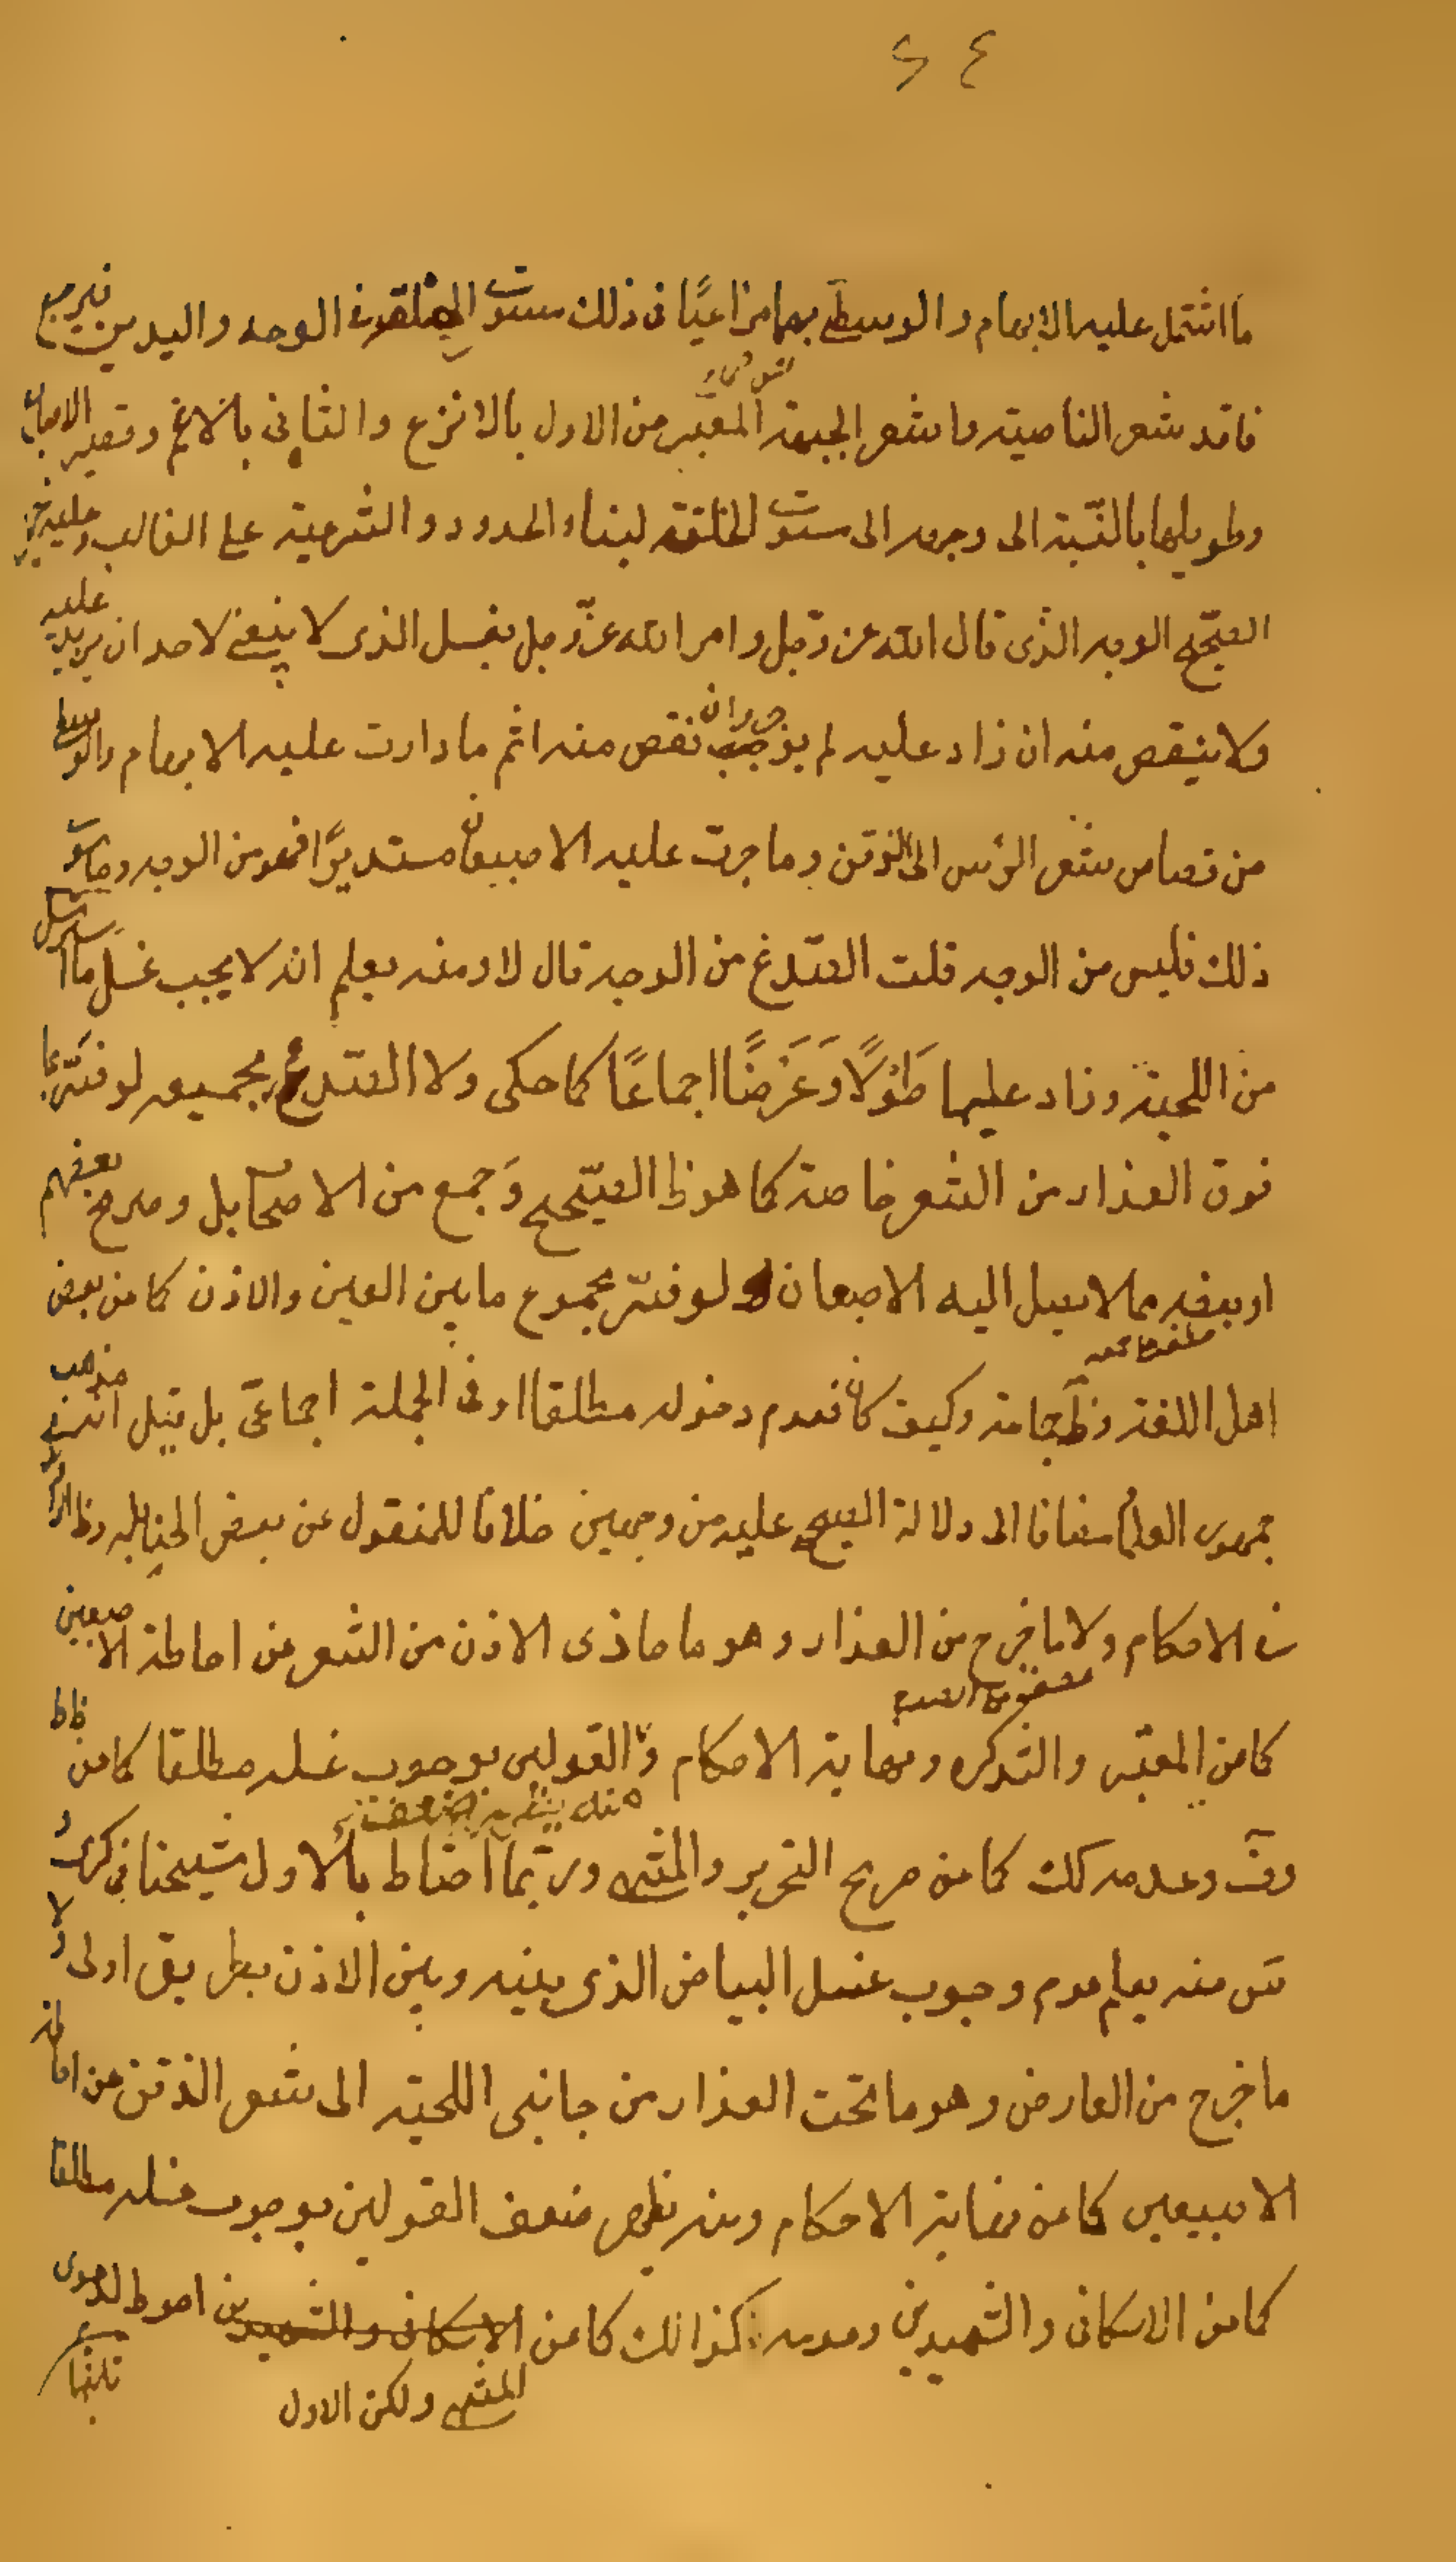 ٢٤
ما اشتمل عليه الابهام والوسطى بهما مراعيًا فى ذلك مستوى الخلقة فى الوجه واليدين فيرجع
فاقد شعر الناصية واشعر الجبهة المعبّر من الاول بالانزع والثانى بالاغم وقصير الاصابع
وطويلها بالنّسبة الى وجهه الى مستوى الخلقة لبناء الحدود الشرعية على الغالب وعليه
الصّحيح الوجه الذى قال الله عزّ وجل وامر الله عزّ وجل بغسل الذى لا ينبغى لاحد ان يزيد عليه
ولا ينقص منه ان زاد عليه لم يؤجر وان نقص منه اثم ما دارت عليه الابهام والوسطى
من قصاص شعر الرأس الى الذقن وما جرت عليه الاصبعان مستديرًا فهو من الوجه وما سوى
ذلك فليس من الوجه قلت الصّدغ من الوجه قال لا ومنه يعلم انه لا يجب غسل ما استرسل
من اللحية وزاد عليها طَوْلًا وَعَرَضًا اجماعًا كما حكى ولا الصّدغ بجميعه لو فسّر بما
فوق العذار من الشعر خاصة كما هو ظ الصّحيح وَجمع من الاصحاب بل وصرح بعضهم
او ببعضه مما لا يصل اليه الاصبعان لو فسّر بمجموع ما بين العين والاذن كما عن بعض
اهل اللغة وظ جامة وكيف كان فعدم دخوله مطلقا او فى الجملة اجماعىّ بل قيل انه مذهب
جمهور العلماء مضافا الى دلالة الصحيح عليه من وجهين خلافا للمنقول عن بعض الحنابلة وظ الراوندى
فى الاحكام ولا ما خرج من العذار وهو ما حاذى الاذن من الشعر عن احاطة الاصبعين
كما عن المعتبر والتذكره ونهاية الاحكام والقولين بوجوب غسله مطلقا كما عن ظاط
وفّ وعدمه كك كما عن صريح التحرير والمنتهى وربّما احتاط بالاول شيخنا فى كرى و
س ومنه يعلم عدم وجوب غسل البياض الذى بينه وبين الاذن بطريق اولى ولا
ما خرج من العارض وهو ما تحت العذار من جانبى اللحية الى شعر الذقن عن احاطة
الاصبعين كما عن نهاية الاحكام ومنه يظهر ضعف القولين بوجوب غسله مطلقا
كما عن الاسكافى والشهيدين وعدمه كذالك كما عن الاسكافى والشهيدين احوط لدعوى
المنتهى ولكن الاول
ثانيهما